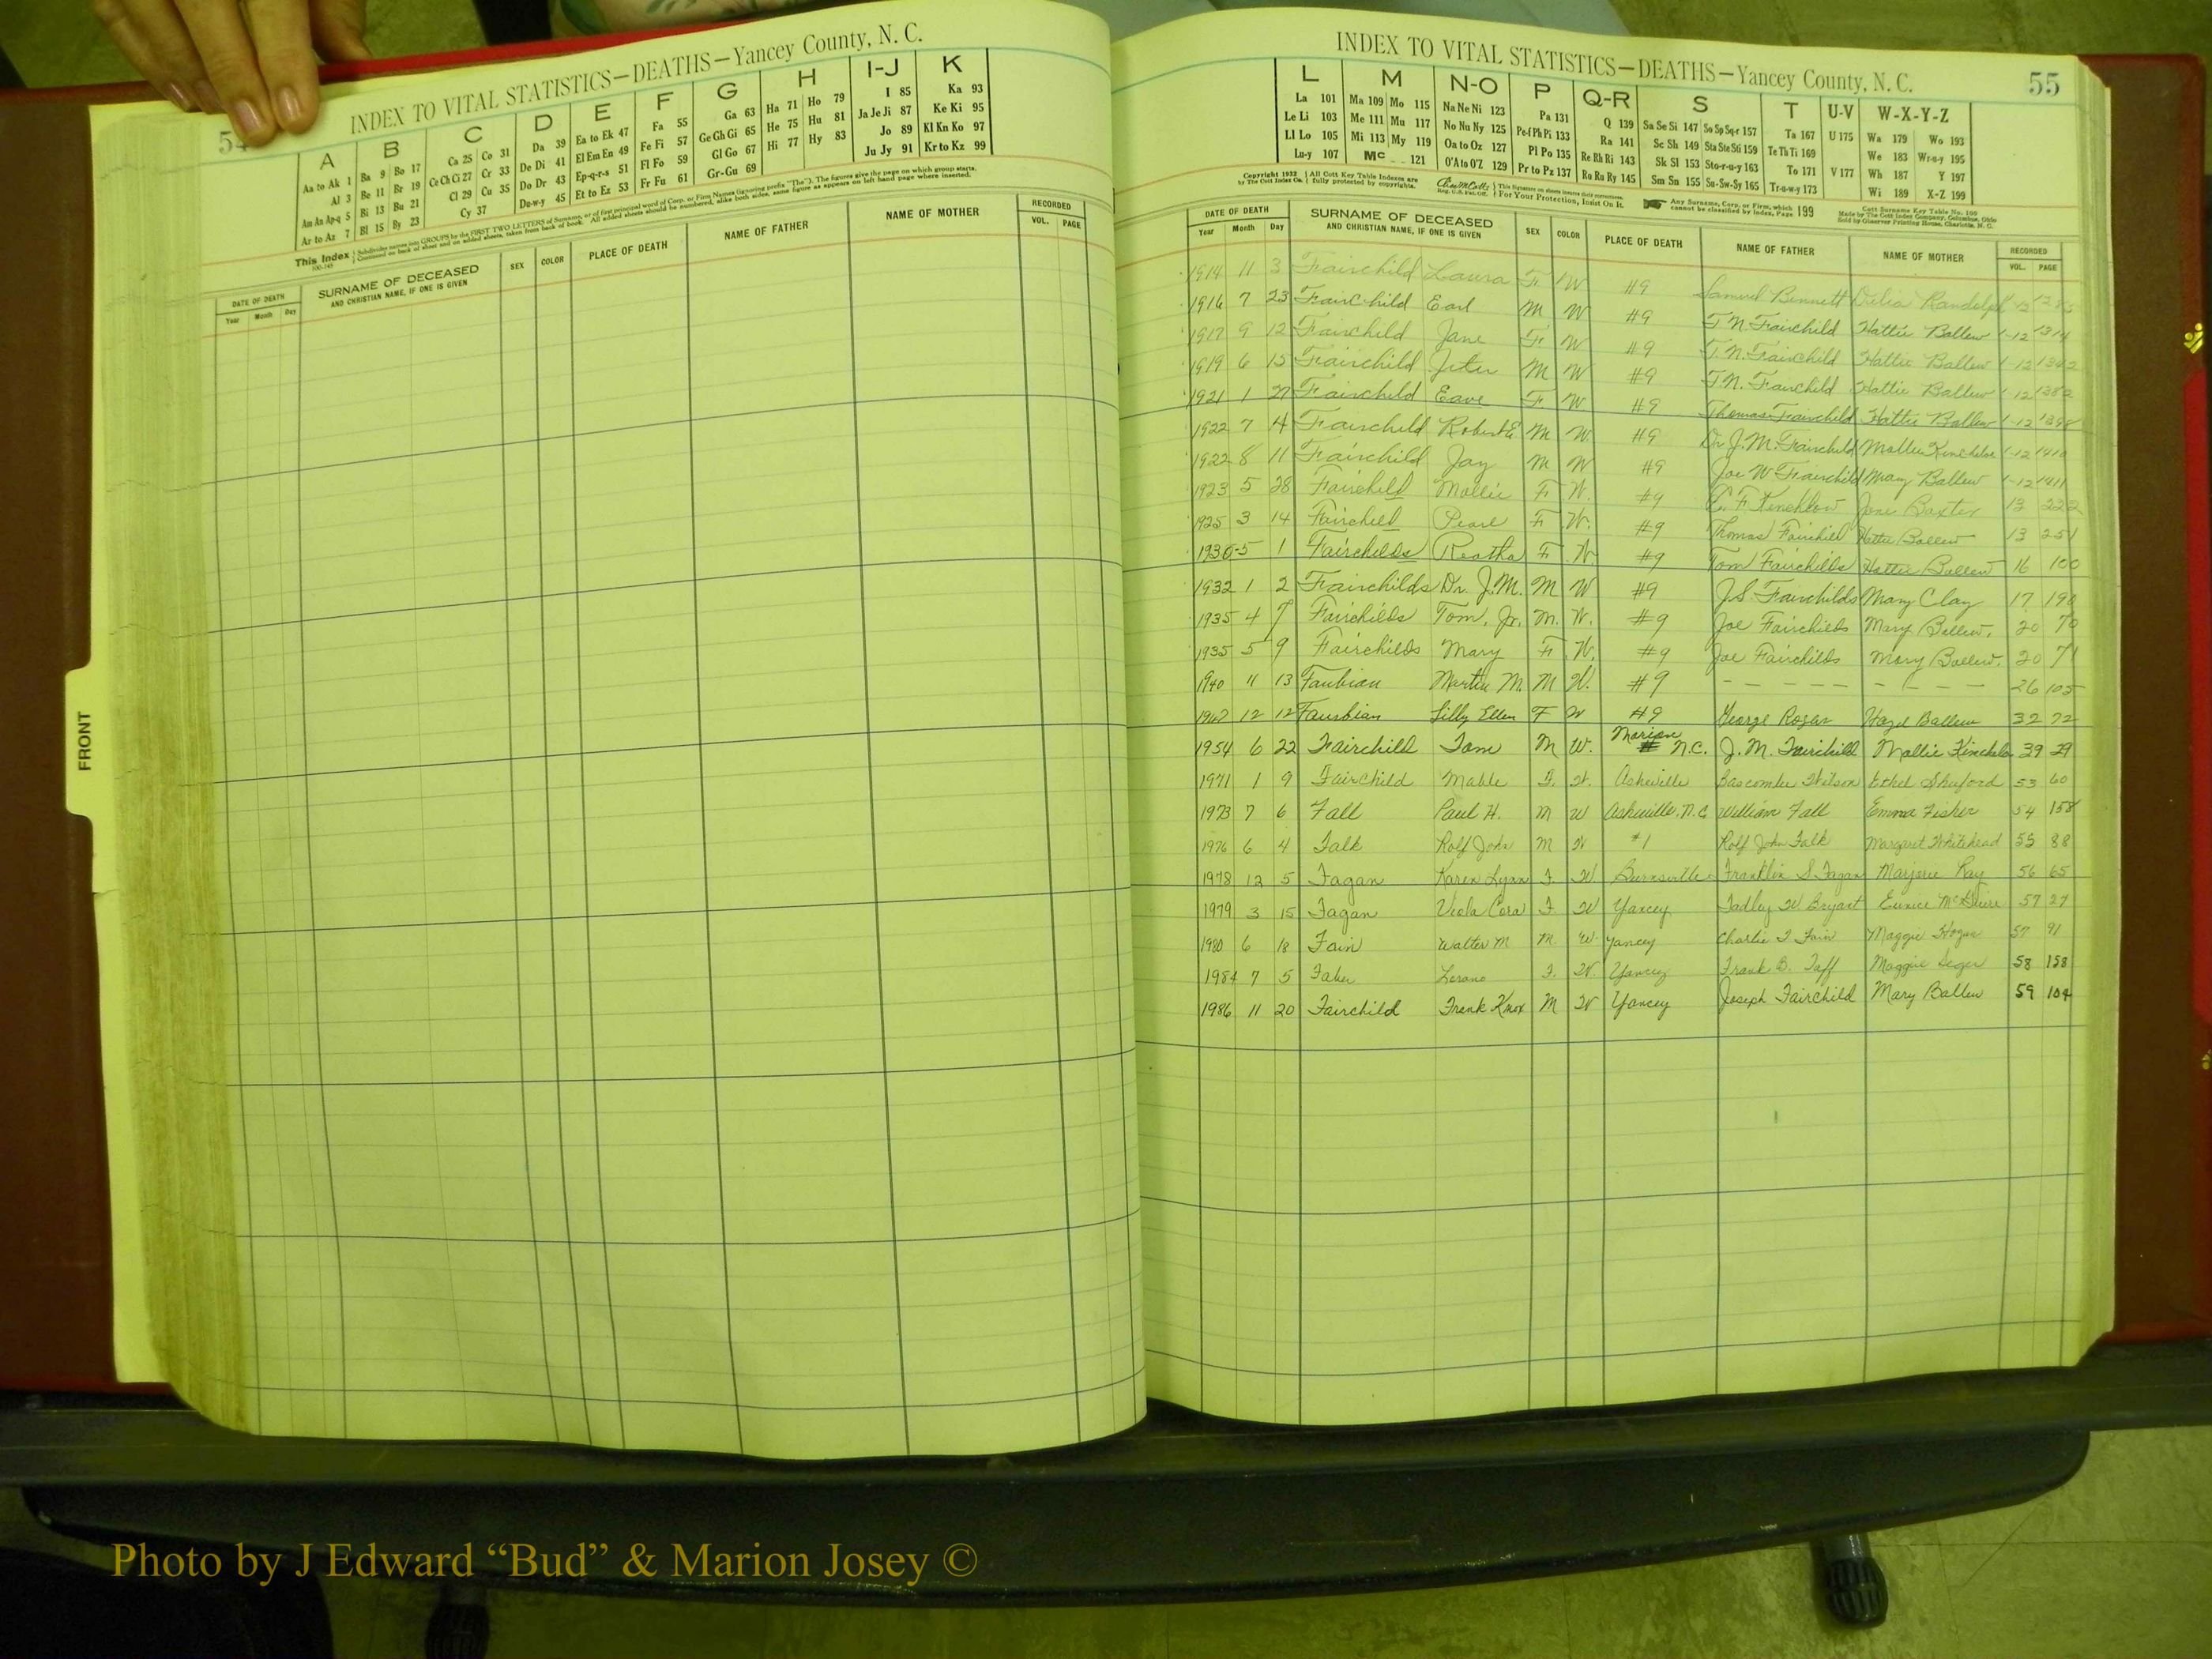 54
INDEX TO VITAL STATISTICS—DEATHS—Yancey County, N. C.
A B C D E F G H I-J K
Aa to Ak 1 Ba 9 Bo 17 Ca 25 Co 31 Da 39 Ea to Ek 47 Fa 55 Ga 63 Ha 71 Ho 79 I 85 Ka 93
Al 3 Be 11 Br 19 Ce Ch Ci 27 Cr 33 De Di 41 El Em En 49 Fe Fi 57 Ge Gh Gi 65 He 75 Hu 81 Ja Je Ji 87 Ke Ki 95
Am An Ap-q 5 Bi 13 Bu 21 Cl 29 Cu 35 Do Dr 43 Ep-q-r-s 51 Fl Fo 59 Gl Go 67 Hi 77 Hy 83 Jo 89 Kl Kn Ko 97
Ar to Az 7 Bl 15 By 23 Cy 37 Du-w-y 45 Et to Ez 53 Fr Fu 61 Gr-Gu 69 Ju Jy 91 Kr to Kz 99
This Index Subdivides names into GROUPS by the FIRST TWO LETTERS of Surname, or of first principal word of Corp. or Firm Names (ignoring prefix "The"). The figures give the page on which group starts.
Continued on back of sheet and on added sheets, taken from back of book. All added sheets should be numbered, alike both sides, same figure as appears on left hand page where inserted.
DATE OF DEATH SURNAME OF DECEASED SEX COLOR PLACE OF DEATH NAME OF FATHER NAME OF MOTHER RECORDED
Year Month Day AND CHRISTIAN NAME, IF ONE IS GIVEN VOL. PAGE
FRONT
INDEX TO VITAL STATISTICS—DEATHS—Yancey County, N. C. 55
L M N-O P Q-R S T U-V W-X-Y-Z
La 101 Ma 109 Mo 115 Na Ne Ni 123 Pa 131 Q 139 Sa Se Si 147 So Sp Sq-r 157 Ta 167 U 175 Wa 179 Wo 193
Le Li 103 Me 111 Mu 117 No Nu Ny 125 Pe-f Ph Pi 133 Ra 141 Sc Sh 149 Sta Ste Sti 159 Te Th Ti 169 We 183 Wr-u-y 195
Ll Lo 105 Mi 113 My 119 Oa to Oz 127 Pl Po 135 Re Rh Ri 143 Sk Sl 153 Sto-r-u-y 163 To 171 V 177 Wh 187 Y 197
Lu-y 107 Mc 121 O'A to O'Z 129 Pr to Pz 137 Ro Ru Ry 145 Sm Sn 155 Su-Sw-Sy 165 Tr-u-w-y 173 Wi 189 X-Z 199
Copyright 1932 by The Cott Index Co. All Cott Key Table Indexes are fully protected by copyrights. For Your Protection, Insist On It. Any Surname, Corp. or Firm, which cannot be classified by Index, Page 199
Cott Surname Key Table No. 100 Made by The Cott Index Company, Columbus, Ohio Sold by Observer Printing House, Charlotte, N. C.
DATE OF DEATH SURNAME OF DECEASED SEX COLOR PLACE OF DEATH NAME OF FATHER NAME OF MOTHER RECORDED
Year Month Day AND CHRISTIAN NAME, IF ONE IS GIVEN VOL. PAGE
1914 11 3 Fairchild Laura F W #9 Samuel Bennett Delia Randolph
1916 7 23 Fairchild Earl M W #9 T. N. Fairchild Hattie Ballew 1-12 1314
1917 9 12 Fairchild Jane F W #9 T. N. Fairchild Hattie Ballew 1-12 1342
1919 6 15 Fairchild Jeter M W #9 T. N. Fairchild Hattie Ballew 1-12 1382
1921 1 27 Fairchild Eave F W #9 Thomas Fairchild Hattie Ballew 1-12 1398
1922 7 4 Fairchild Robert E. M W #9 Dr J. M. Fairchild Mollie Kincheloe 1-12 1410
1922 8 11 Fairchild Jay M W #9 Joe W Fairchild Mary Ballew 1-12 1411
1923 5 28 Fairchild Mollie F W. #9 C. F. Kinchlow Jane Baxter 13 222
1925 3 14 Fairchild Pearl F W. #9 Thomas Fairchild Hattie Ballew 13 251
1930 5 1 Fairchilds Reatha F W #9 Tom Fairchilds Hattie Ballew 16 100
1932 1 2 Fairchilds Dr. J. M. M W #9 J. S. Fairchilds Mary Clay 17 190
1935 4 7 Fairchilds Tom, Jr. M. W. #9 Joe Fairchilds Mary Ballew. 20 70
1935 5 9 Fairchilds Mary F W. #9 Joe Fairchilds Mary Ballew. 20 71
1940 11 13 Faubian Martin M. M W. #9 — — — — — — — — — 26 105
1947 12 12 Faubian Lilly Ellen F W #9 George Rogan Hazel Ballew 32 72
1954 6 22 Fairchild Tom M W. Marion N.C. J. M. Fairchild Mollie Kinchelo 39 29
1971 1 9 Fairchild Mable F. W. Asheville Bascombe Wilson Ethel Shuford 53 60
1973 7 6 Fall Paul H. M W Asheville, N.C. William Fall Emma Fisher 54 158
1976 6 4 Falk Rolf John M W #1 Rolf John Falk Margaret Whitehead 55 88
1978 12 5 Fagan Karen Lynn F. W Burnsville Franklin S. Fagan Marjorie Ray 56 65
1979 3 15 Fagan Viola Cora F. W Yancey Tadley W. Bryant Eunice McGuire 57 27
1980 6 18 Fain Walter M M. W. Yancey Charlie T Fain Maggie Hogue 57 91
1984 7 5 Faber F. W. Yancey Frank B. Taff Maggie 58 158
1986 11 20 Fairchild Frank Knox M W Yancey Joseph Fairchild Mary Ballew 59 104
Photo by J Edward “Bud” & Marion Josey ©